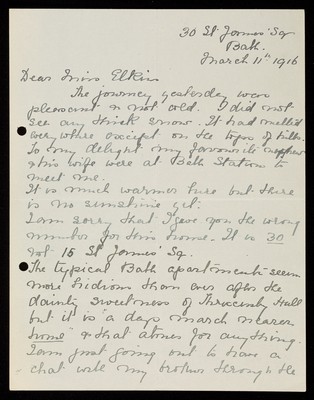 30 St James' Sq
Bath.
March 11th 1916
Dear Miss Elkins
The journey yesterday was
pleasant & not cold. I did not
see any thick snow. It had melted
everywhere except on the tops of hills.
To my delight my favourite nephew
& his wife were at Bath Station to
meet me.
It is much warmer here but there
is no sunshine yet.
I am sorry that I gave you the wrong
number for this house. It is 30
not 15 St James' Sq.
The typical Bath apartments seem
more hideous than ever after the
dainty sweetness of Hall
but it is "a days march nearer
home" & that atones for anything.
I am just going out to have a
chat with my brother through the